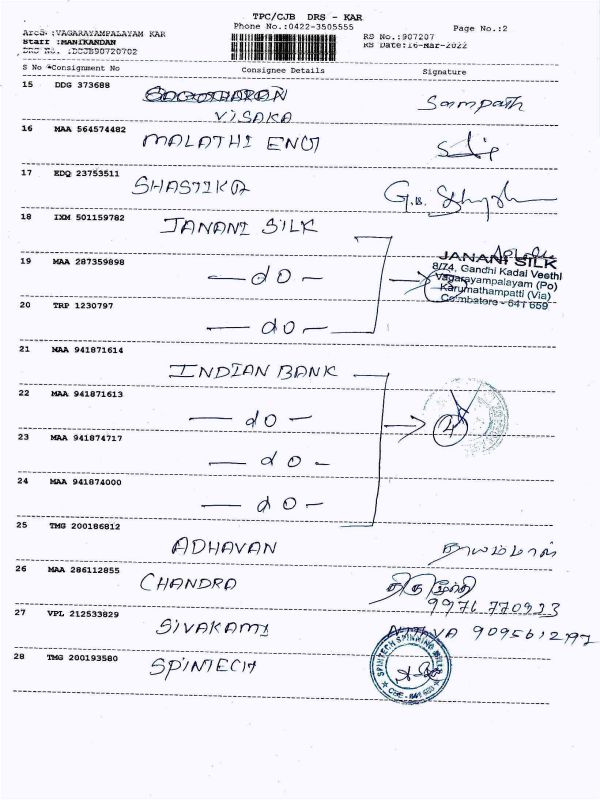 TPC/CJB DRS - KAR
Phone No.:0422-3505555
Page No.:2
Area :VAGARAYAMPALAYAM KAR
RS No.:907207
Staff :MANIKANDAN
RS Date:16-Mar-2022
DRS No. :DCJB90720702
S No Consignment No Consignee Details Signature
15 DDG 373688 Sampath
VISAKA
16 MAA 564574482 MALATHI ENG
17 EDQ 23753511 SHASTIKA G.B.
18 IXM 501159782 JANANI SILK
19 MAA 287359898 — do —
JANANI SILK
8/74, Gandhi Kadai Veethi
Vagarayampalayam (Po)
Karumathampatti (Via)
Coimbatore - 641 659
20 TRP 1230797 — do —
21 MAA 941871614 INDIAN BANK
22 MAA 941871613 — do — 4
23 MAA 941874717 — do —
24 MAA 941874000 — do —
25 TMG 200186812 ADHAVAN தாயம்மாள்
26 MAA 286112855 CHANDRA
27 VPL 212533829 SIVAKAMI
28 TMG 200193580 SPINTECH
SPINTECH SPINNING MILL
CBE - 641 659